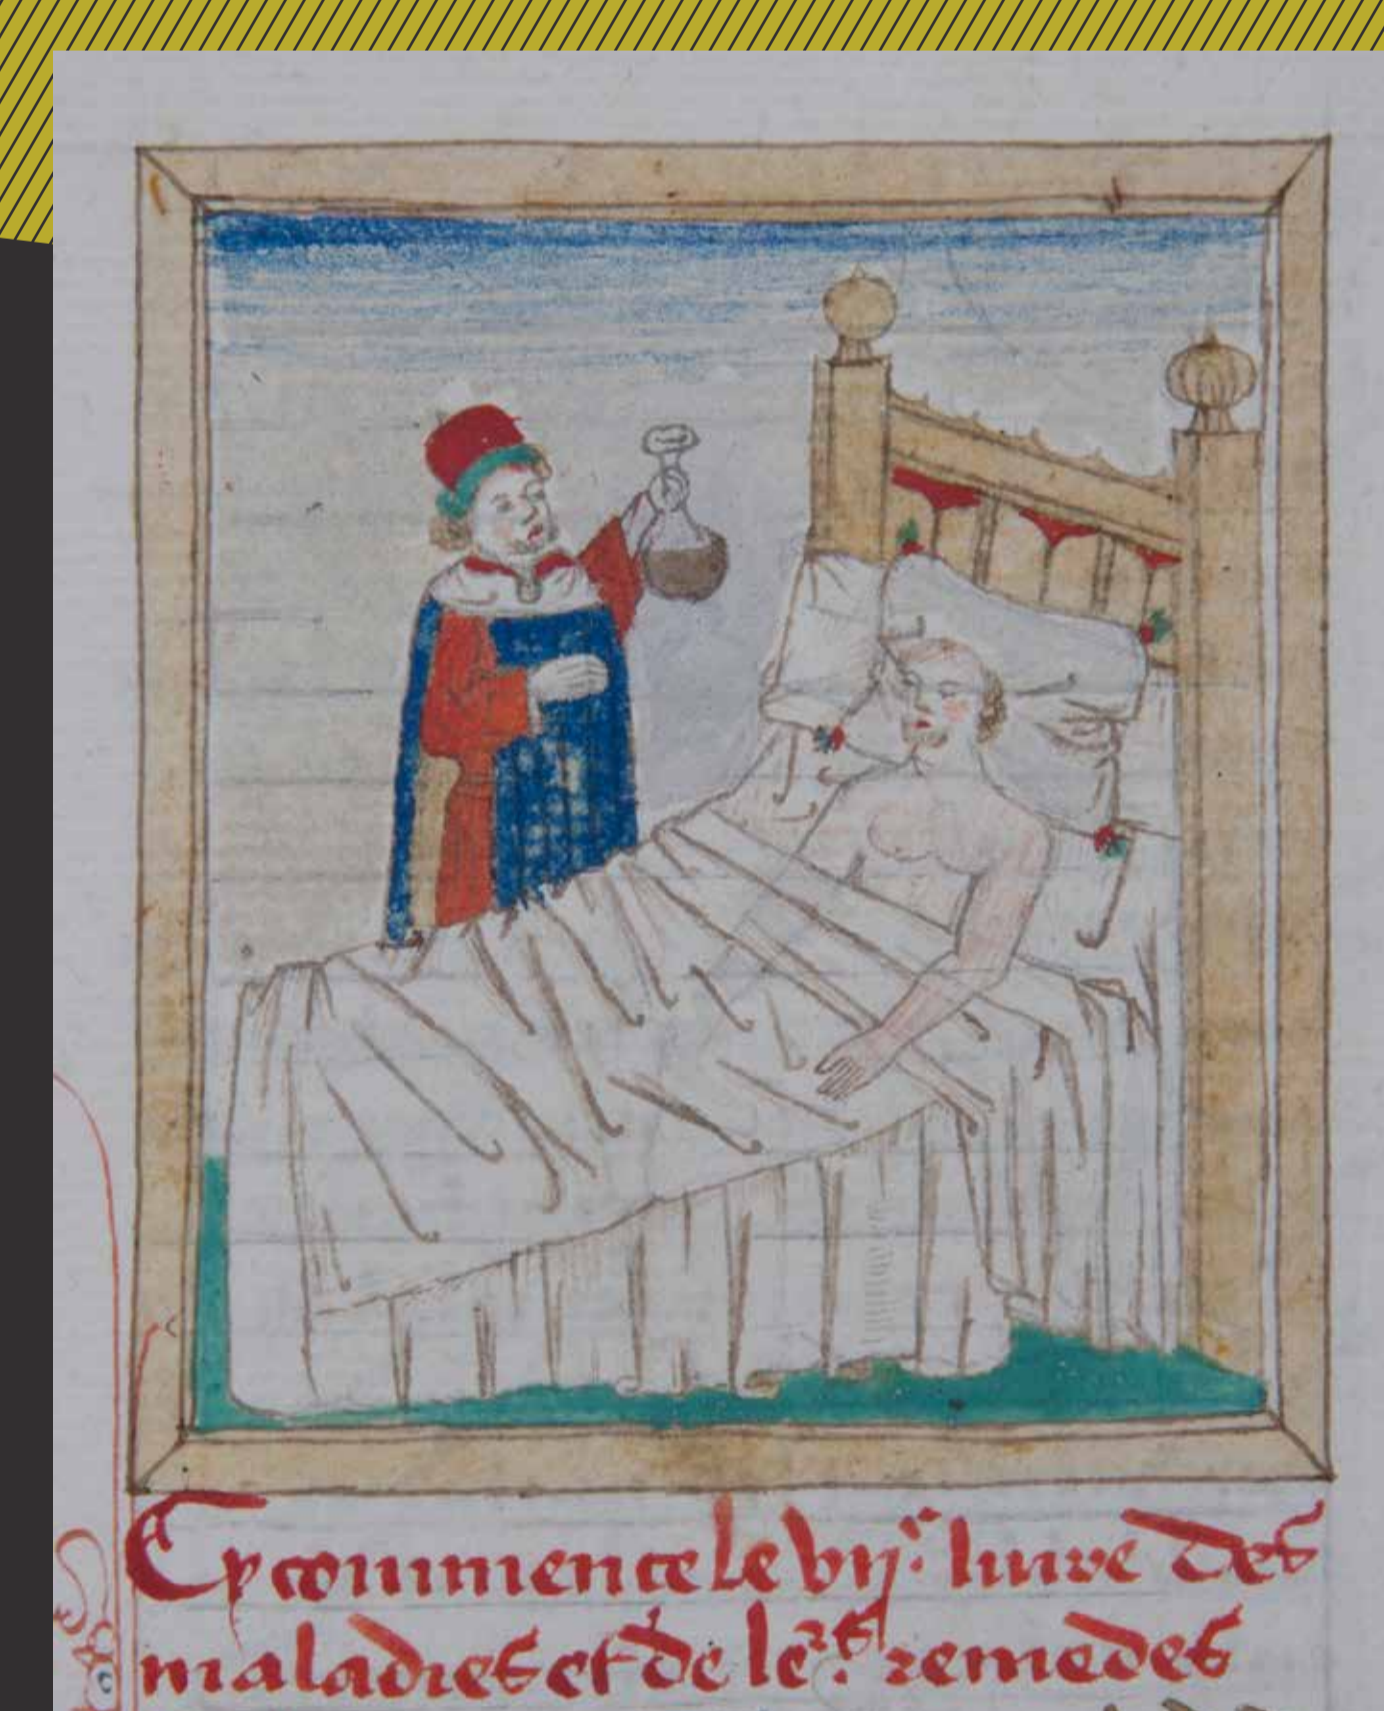 Cy commence le vij.e livre des
maladies et de le.rs remedes